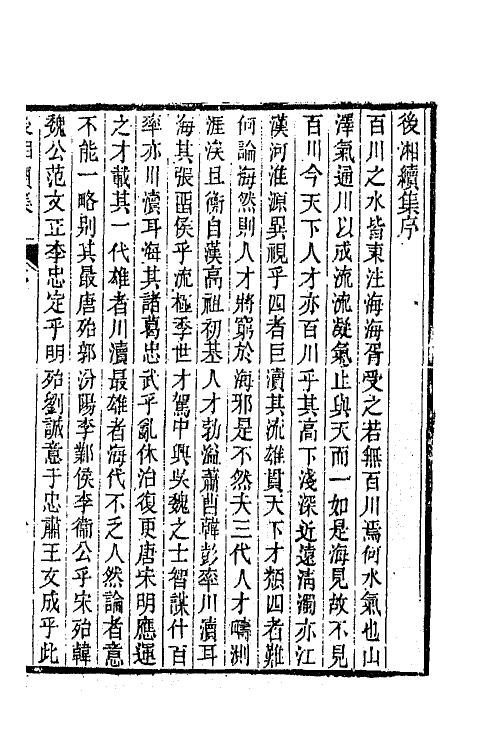 後湘續集序
百川之水皆東注海海胥受之若無百川焉何水氣也山
澤氣通川以成流流凝氣止與天而一如是海見故不見
百川今天下人才亦百川乎其高下淺深近遠淸濁亦江
漢河淮源異視乎四者巨瀆其流雄貫天下才類四者難
何論海然則人才將窮於海邪是不然夫三代人才疇測
涯涘且衡自漢高祖初基人才勃溢蕭曹韓彭率川瀆耳
海其張畱侯乎流極季世才駕中興吳魏之士智謀什百
率亦川瀆耳海其諸葛忠武乎亂休治復更唐宋明應運
之才載其一代雄者川瀆最雄者海代不乏人然論者意
不能一略別其最唐殆郭汾陽李鄴侯李衞公乎宋殆韓
魏公范文正李忠定乎明殆劉誠意于忠肅王文成乎此
後湘續集